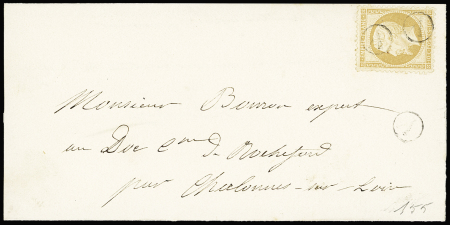 Monsieur Bouron expert
au Doc Cne de Rochefort
par Chalonnes-sur-Loire
155